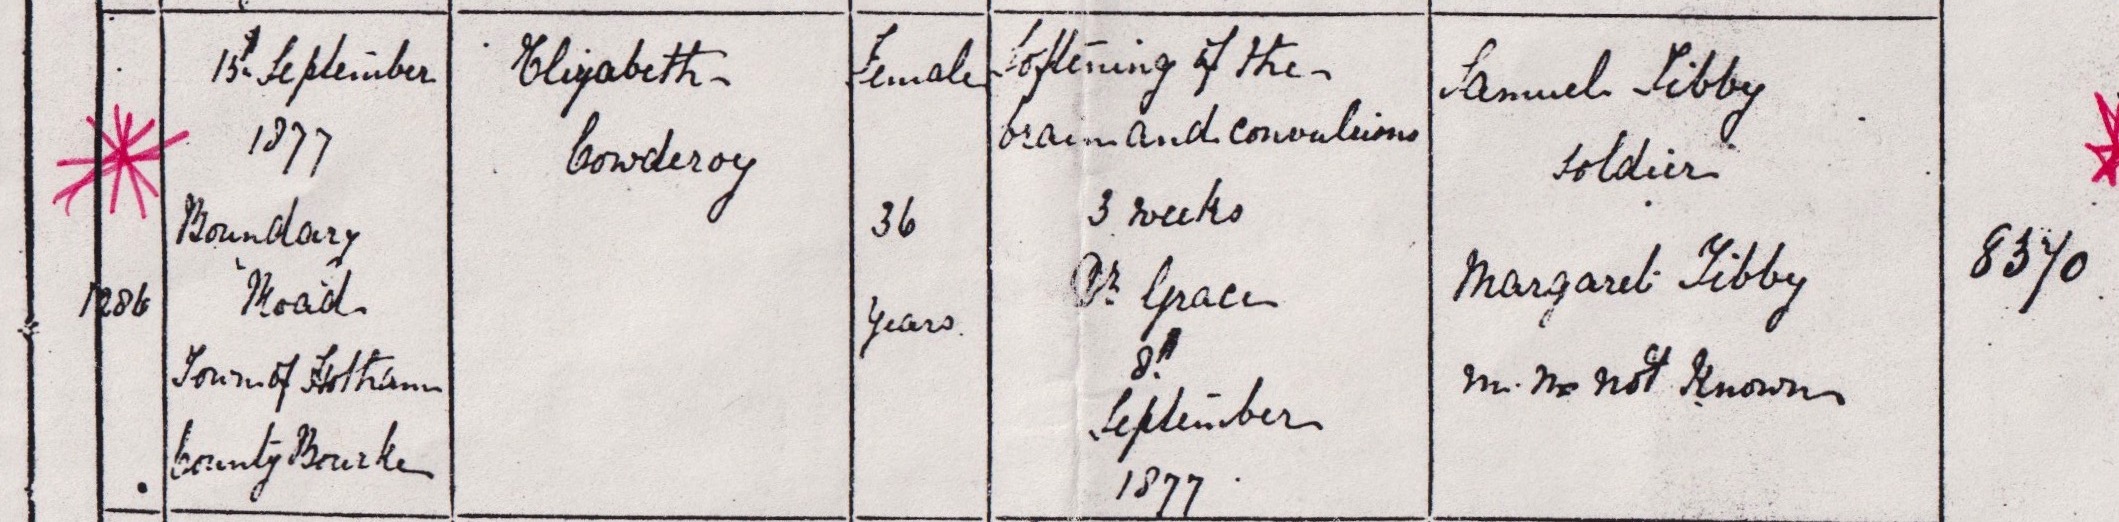 1286
15th September
1877
Boundary
Road
Town of Hotham
County Bourke
Elizabeth
Cowderoy
Female
36
years
Softening of the
brain and convulsions
3 weeks
Dr Grace
8th
September
1877
Samuel Tibby
soldier
Margaret Tibby
m. n. not known
8370